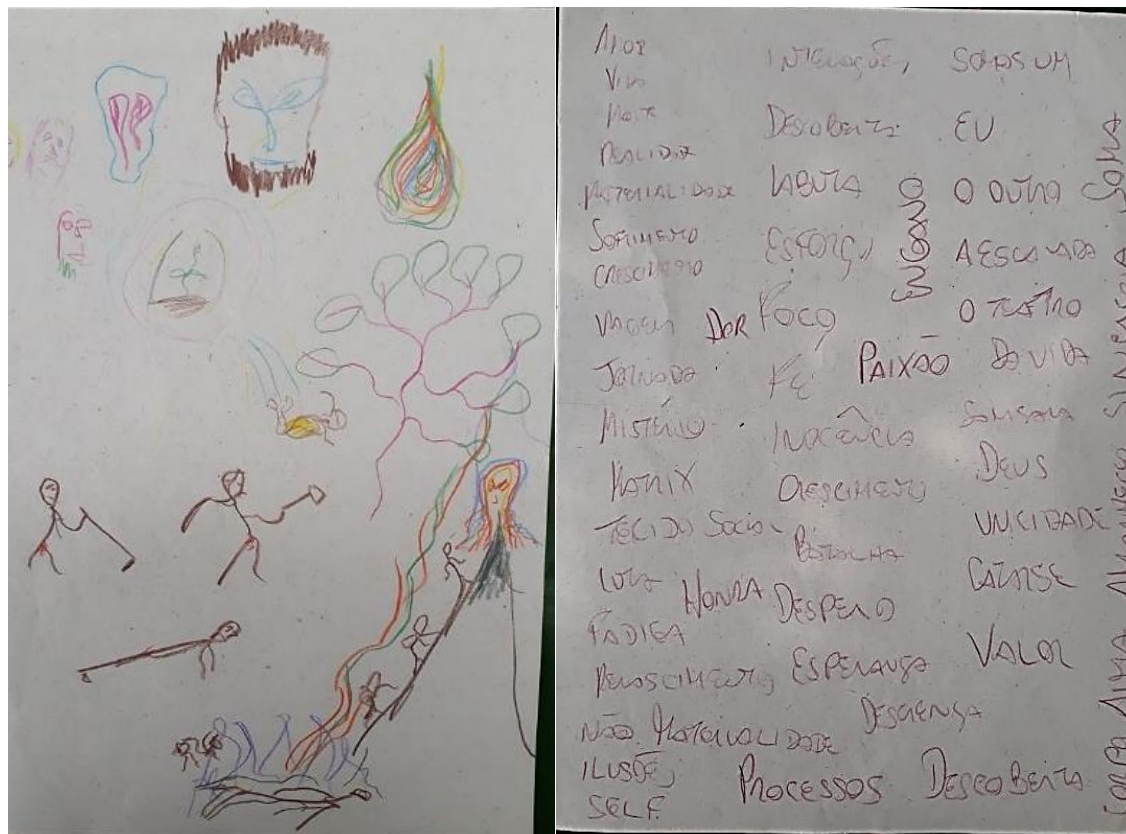 AMOR
VIDA
MORTE
REALIDADE
MATERIALIDADE
SOFRIMENTO
CRESCIMENTO
VIAGEM
JORNADA
MISTÉRIO
MATRIX
TECIDO SOCIAL
LUTA
FADIGA
RENASCIMENTO
NÃO MATERIALIDADE
ILUSÕES
SELF
INTERAÇÕES
DESCOBERTA
LABUTA
ESFORÇO
DOR FOCO
FÉ
INOCÊNCIA
CRESCIMENTO
BATALHA
HONRA DESPERO
ESPERANÇA
DESCRENÇA
PROCESSOS DESCOBERTA
SOMOS UM
EU
O OUTRO
A ESCALADA
O TEATRO
DA VIDA
PAIXÃO
DEUS
UNICIDADE
CATARSE
VALOR
CORPO ALMA